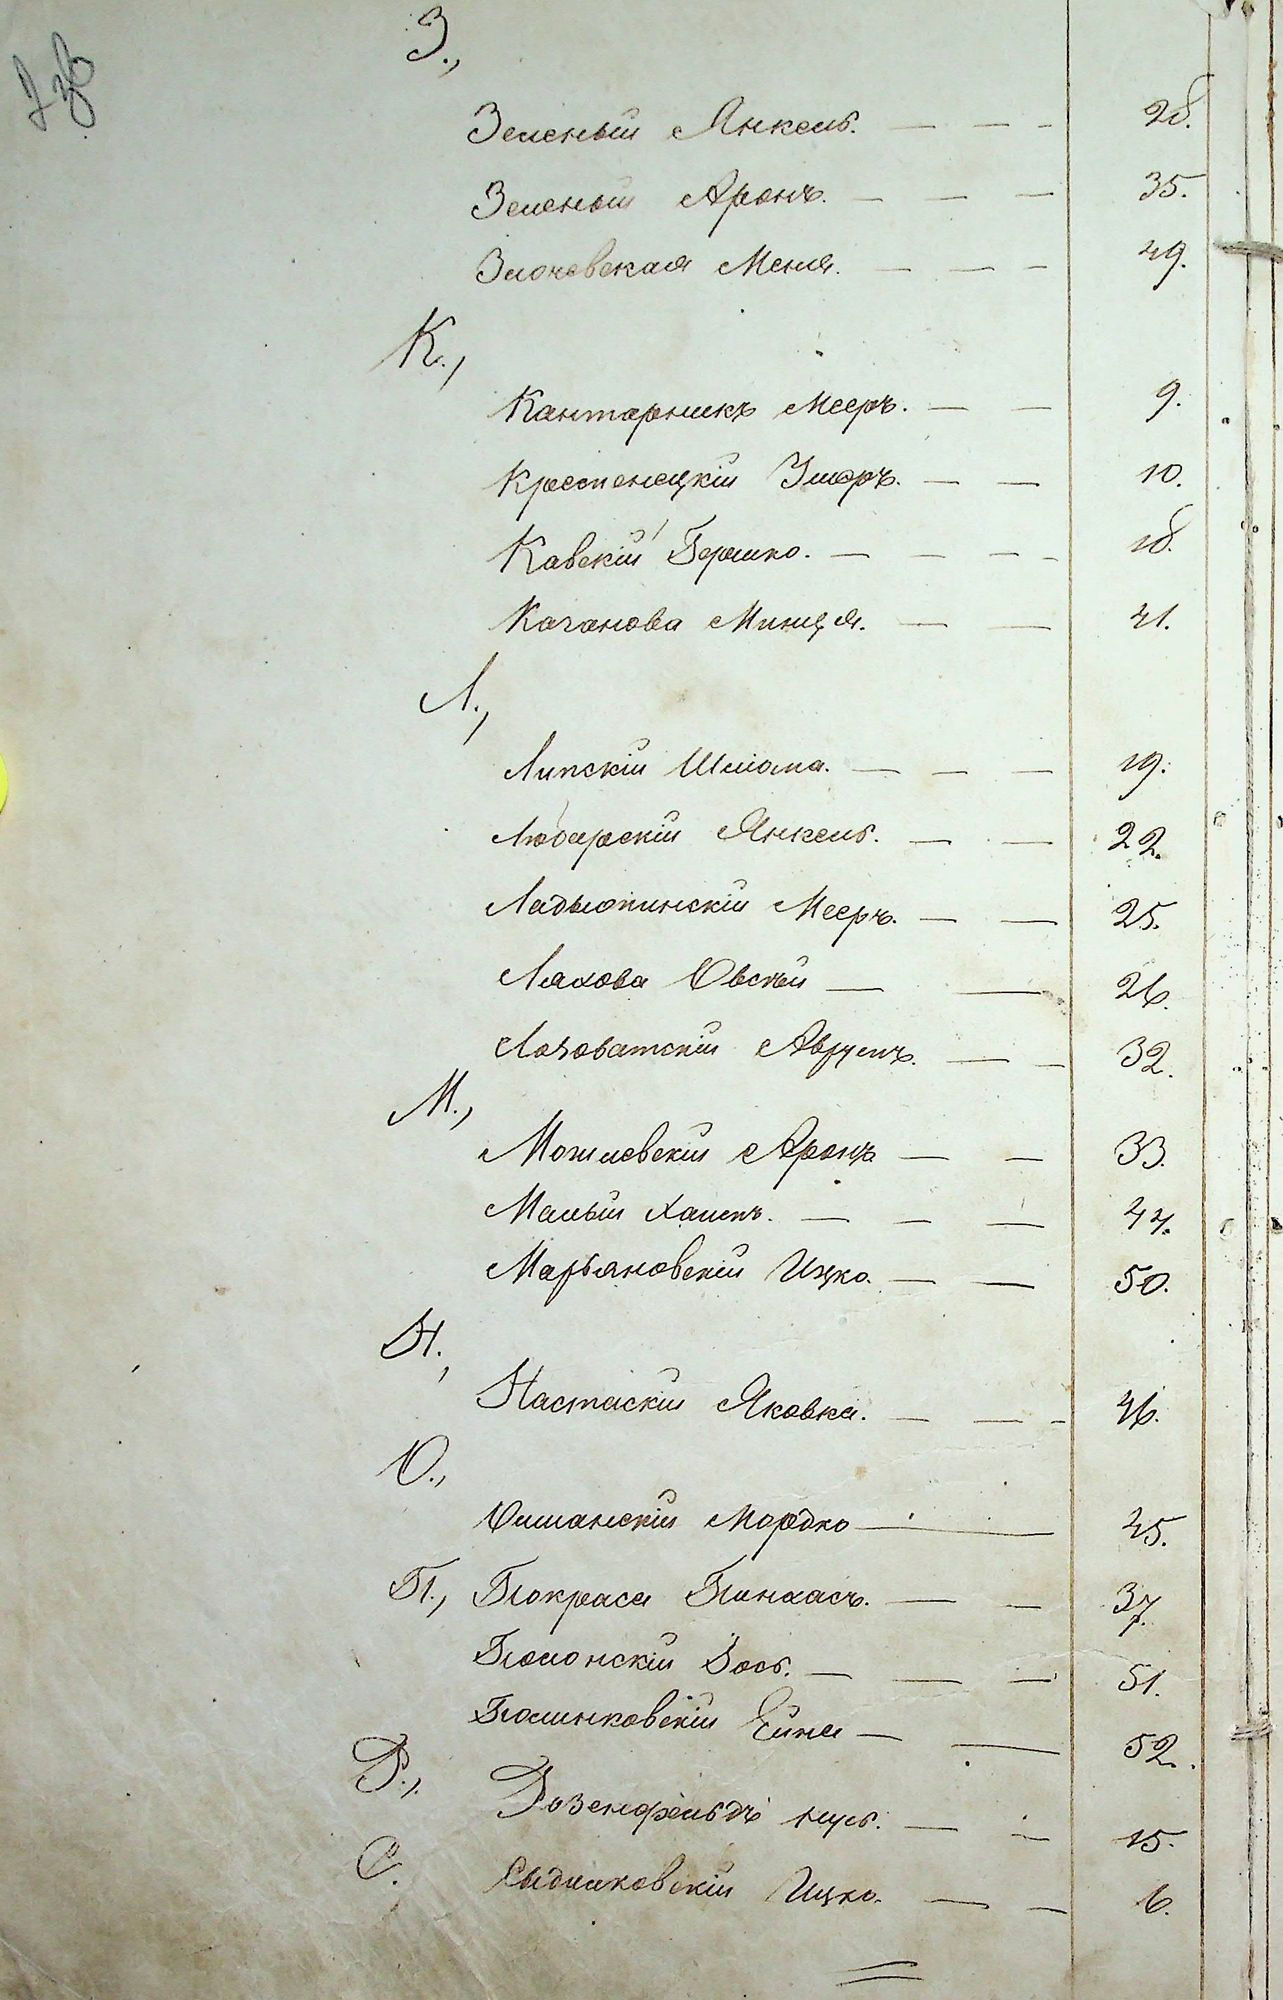 З.,
Зеленый Янкель. — — — 28.
Зеленый Аронъ. — — — 35.
Злочевская Меня. — — — 49.
К.,
Кантарникъ Мееръ. — — 9.
Кременецкій Эмеръ. — — 10.
Кавскій Гершко. — — — — 18.
Качанова Минця. — — 41.
Л.,
Липскій Шлиома. — — — 19.
Любарскій Янкель. — — 22.
Ладыжинскій Мееръ. — — 25.
Ляхова Овсѣй — — 26.
Лозоватскій Аврумъ. — — 32.
М.,
Могилевскій Аронъ — — 33.
Малый Хаимъ. — — — 44.
Марьяновскій Ицко. — — 50.
Н.,
Настаскій Яковка. — — — 46.
О.,
Ольшанскій Мордко — — 45.
П., Покраса Пинхасъ. — — 37.
Полонскій Іось. — — — 51.
Полинковскій Ейна — — 52.
Р.,
Розенфельдъ Нусъ. — — 15.
С.
Сыдилковскій Ицко. — — 6.